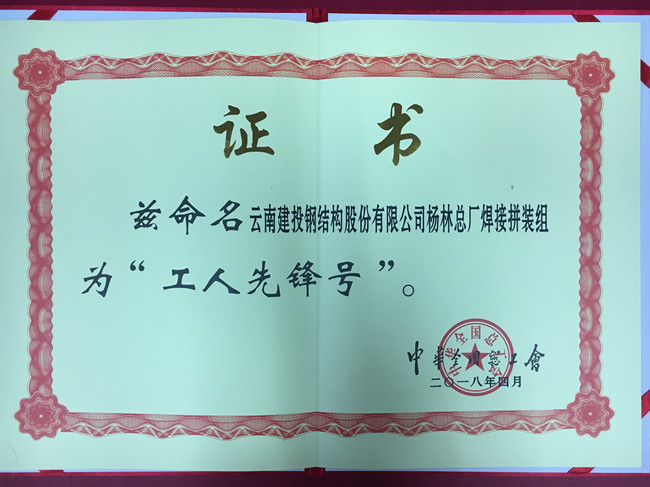 证书
兹命名云南建投钢结构股份有限公司杨林总厂焊接拼装组
为“工人先锋号”。
中华全国总工會
二〇一八年四月
中华全国总工会